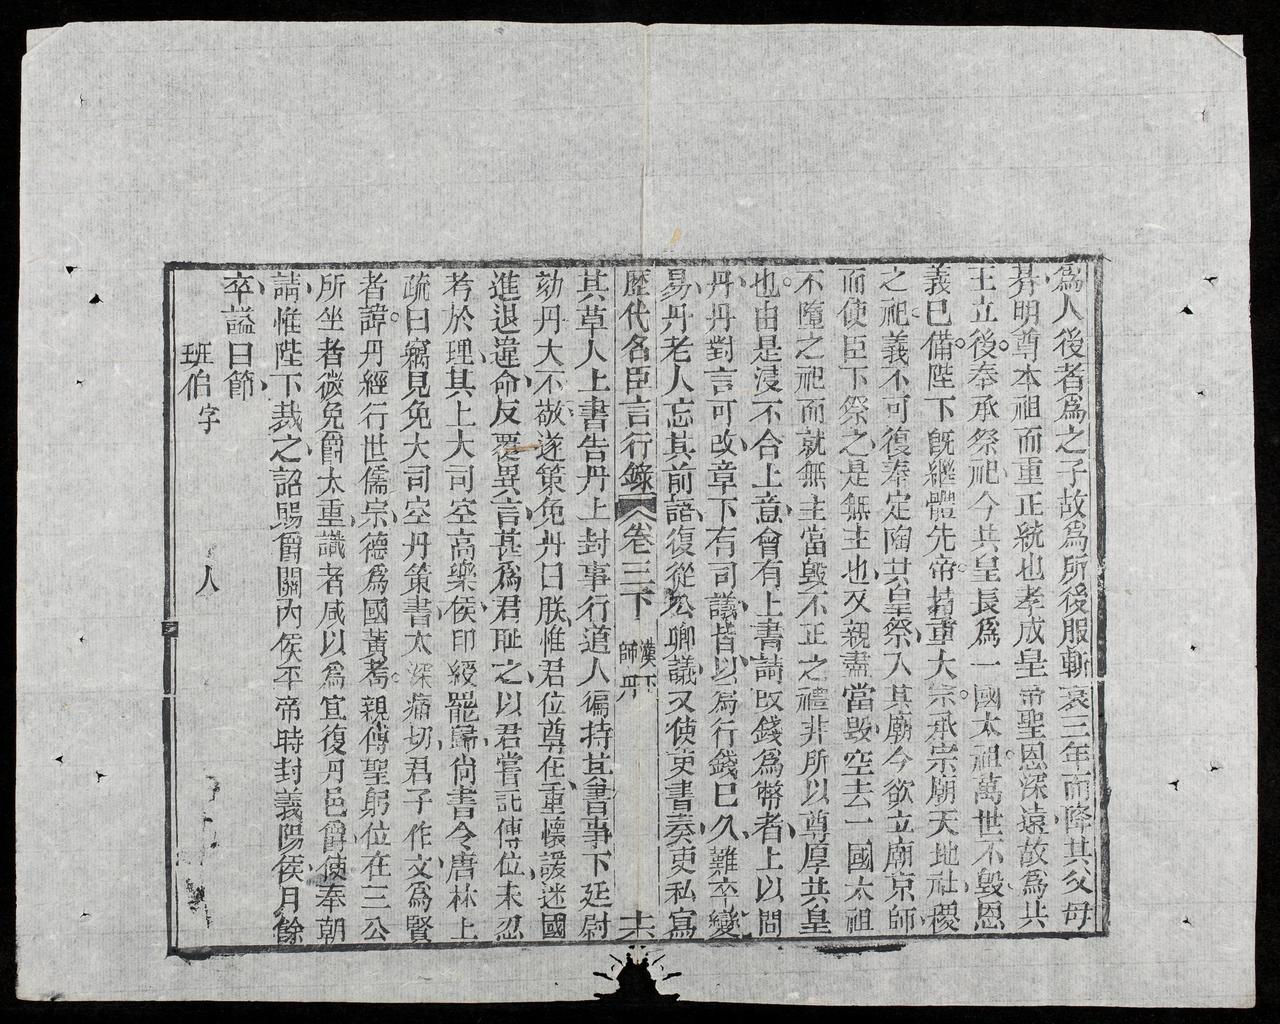 爲人後者爲之子故爲所後服斬衰三年而降其父母
朞明尊本祖而重正統也孝成皇帝聖恩深遠故爲共
王立後奉承祭祀今共皇長爲一國太祖萬世不毀恩
義已備陛下旣繼體先帝持重大宗承宗廟天地社稷
之祀義不可復奉定陶共皇祭入其廟今欲立廟京師
而使臣下祭之是無主也又親盡當毀空去一國太祖
不墮之祀而就無主當毀不正之禮非所以尊厚共皇
也由是浸不合上意會有上書請改錢爲幣者上以問
丹丹對言可改章下有司議皆以爲行錢已久難卒變
易丹老人忘其前語復從公卿議又使吏書奏吏私寫
歷代名臣言行錄 卷三下 漢下 師丹
其草人上書告丹上封事行道人徧持其書事下廷尉
劾丹大不敬遂策免丹曰朕惟君位尊任重懷諼迷國
進退違命反覆異言甚爲君恥之以君嘗託傅位未忍
考於理其上大司空高樂侯印綬罷歸尚書令唐林上
疏曰竊見免大司空丹策書太深痛切君子作文爲賢
者諱丹經行世儒宗德爲國黃耇親傅聖躬位在三公
所坐者微免爵太重識者咸以爲宜復丹邑爵使奉朝
請惟陛下裁之詔賜爵關內侯平帝時封義陽侯月餘
卒謚曰節
班伯字 人